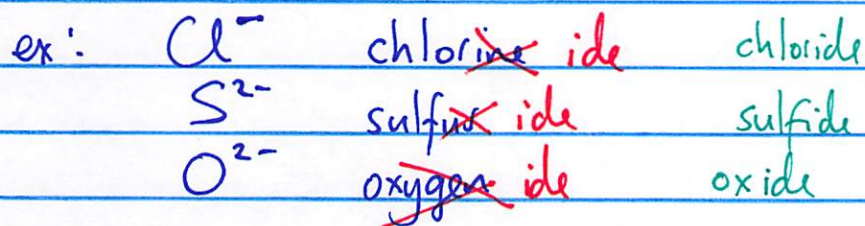 ex: Cl⁻ chlorine ide chloride
S²⁻ sulfur ide sulfide
O²⁻ oxygen ide oxide